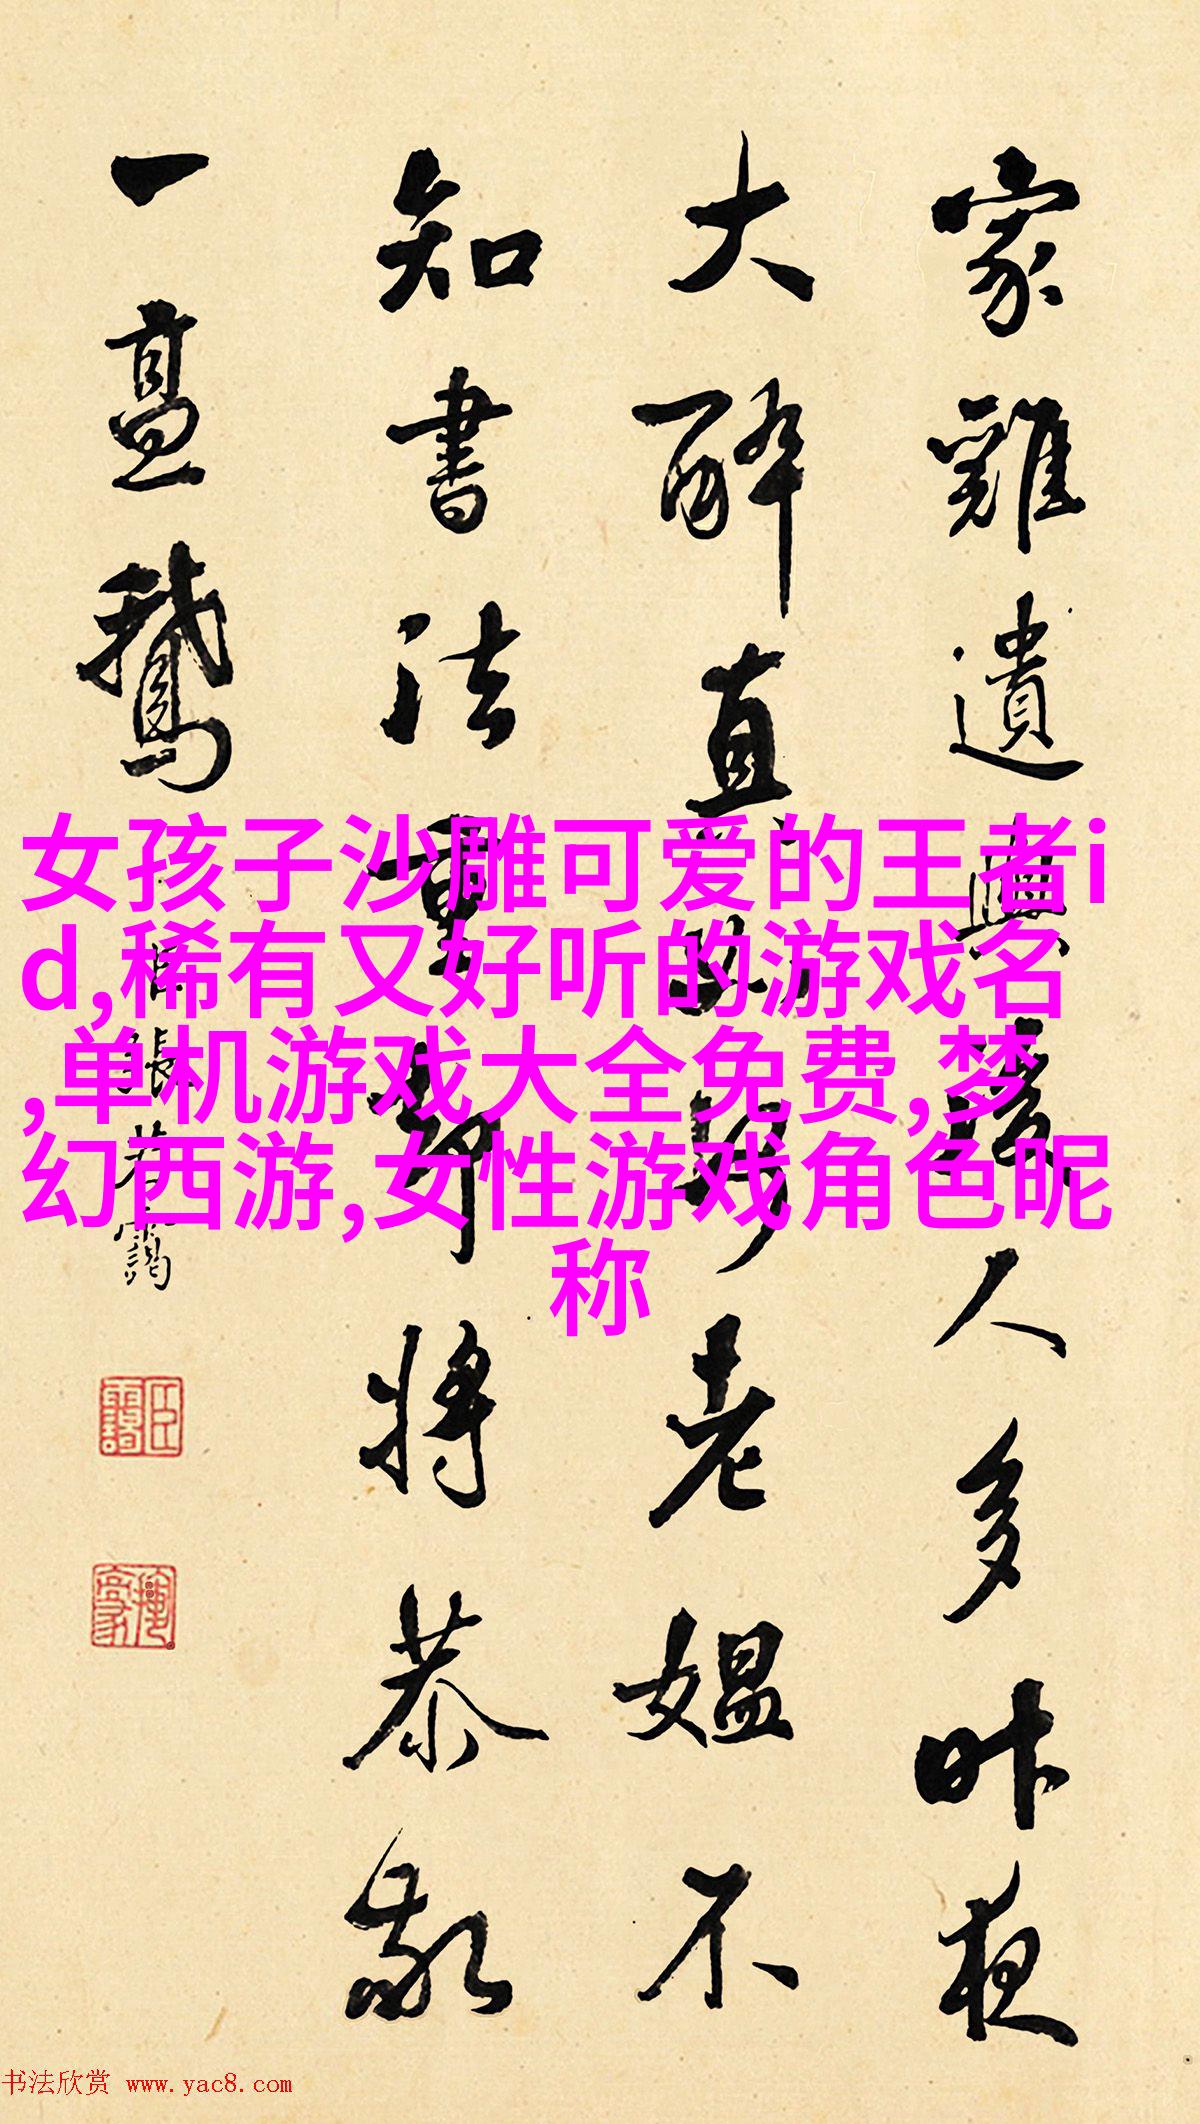 家雞遺與人多昨夜
大醉直老媼不
知書法重將恭敬
一鵝
臣張若靄
女孩子沙雕可爱的王者i
d,稀有又好听的游戏名
,单机游戏大全免费,梦
幻西游,女性游戏角色昵
称
书法欣赏 www.yac8.com